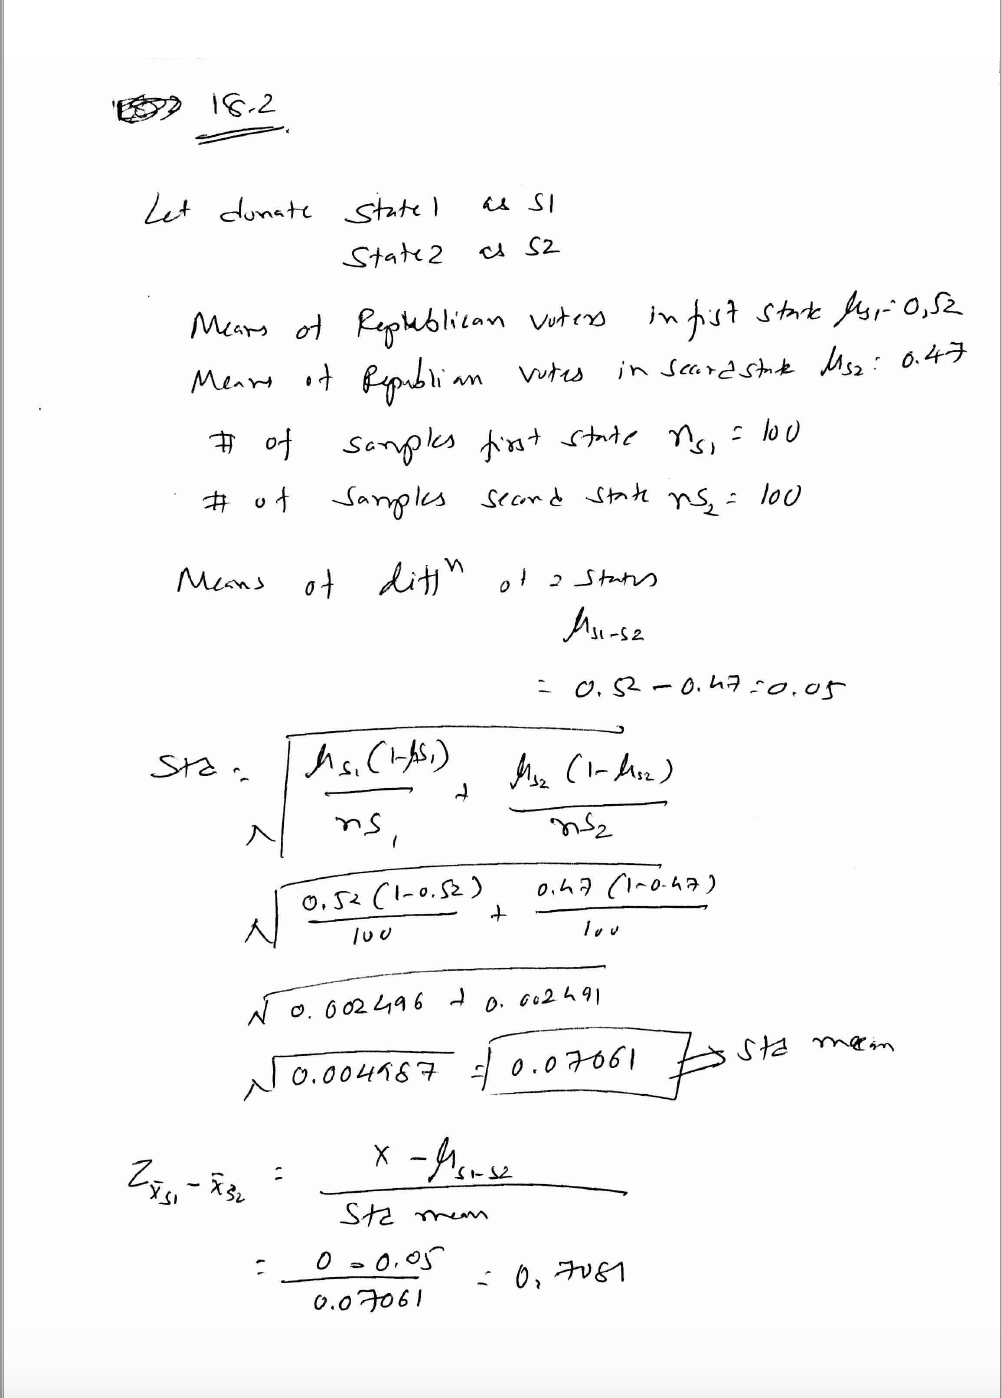 18.2
Let donate State 1 as S1
State 2 as S2
Means of Repleblican voters in fist State μs1 = 0.52
Means of Republian votes in second state μs2 : 0.47
# of samples first state ns1 = 100
# of samples second state ns2 = 100
Means of diffⁿ of 2 states
μs1-s2
= 0.52 - 0.47 = 0.05
Std = √( μs1(1-μs1) / ns1 + μs2(1-μs2) / ns2 )
√( 0.52(1-0.52) / 100 + 0.47(1-0.47) / 100 )
√( 0.002496 + 0.002491 )
√0.004987 = 0.07061 ⇒ Std mean
Z x̄s1 - x̄s2 = ( x - μs1-s2 ) / Std mean
= ( 0 - 0.05 ) / 0.07061 = 0.7081